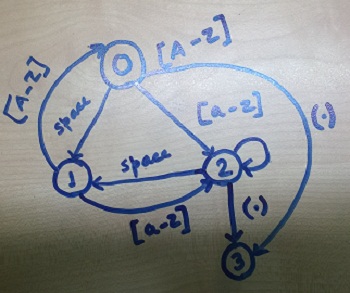 [A-Z]
0
[A-Z]
space
[a-z]
(.)
space
1
2
[a-z]
(.)
3